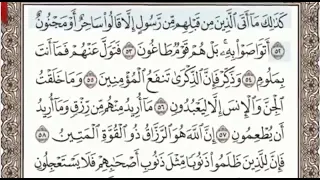 كَذَٰلِكَ مَآ أَتَى ٱلَّذِينَ مِن قَبۡلِهِم مِّن رَّسُولٍ إِلَّا قَالُواْ سَاحِرٌ أَوۡ مَجۡنُونٌ
٥٢ أَتَوَاصَوۡاْ بِهِۦۚ بَلۡ هُمۡ قَوۡمٞ طَاغُونَ ٥٣ فَتَوَلَّ عَنۡهُمۡ فَمَآ أَنتَ
بِمَلُومٖ ٥٤ وَذَكِّرۡ فَإِنَّ ٱلذِّكۡرَىٰ تَنفَعُ ٱلۡمُؤۡمِنِينَ ٥٥ وَمَا خَلَقۡتُ
ٱلۡجِنَّ وَٱلۡإِنسَ إِلَّا لِيَعۡبُدُونِ ٥٦ مَآ أُرِيدُ مِنۡهُم مِّن رِّزۡقٖ وَمَآ أُرِيدُ
أَن يُطۡعِمُونِ ٥٧ إِنَّ ٱللَّهَ هُوَ ٱلرَّزَّاقُ ذُو ٱلۡقُوَّةِ ٱلۡمَتِينُ ٥٨
فَإِنَّ لِلَّذِينَ ظَلَمُواْ ذَنُوبٗا مِّثۡلَ ذَنُوبِ أَصۡحَٰبِهِمۡ فَلَا يَسۡتَعۡجِلُونِ